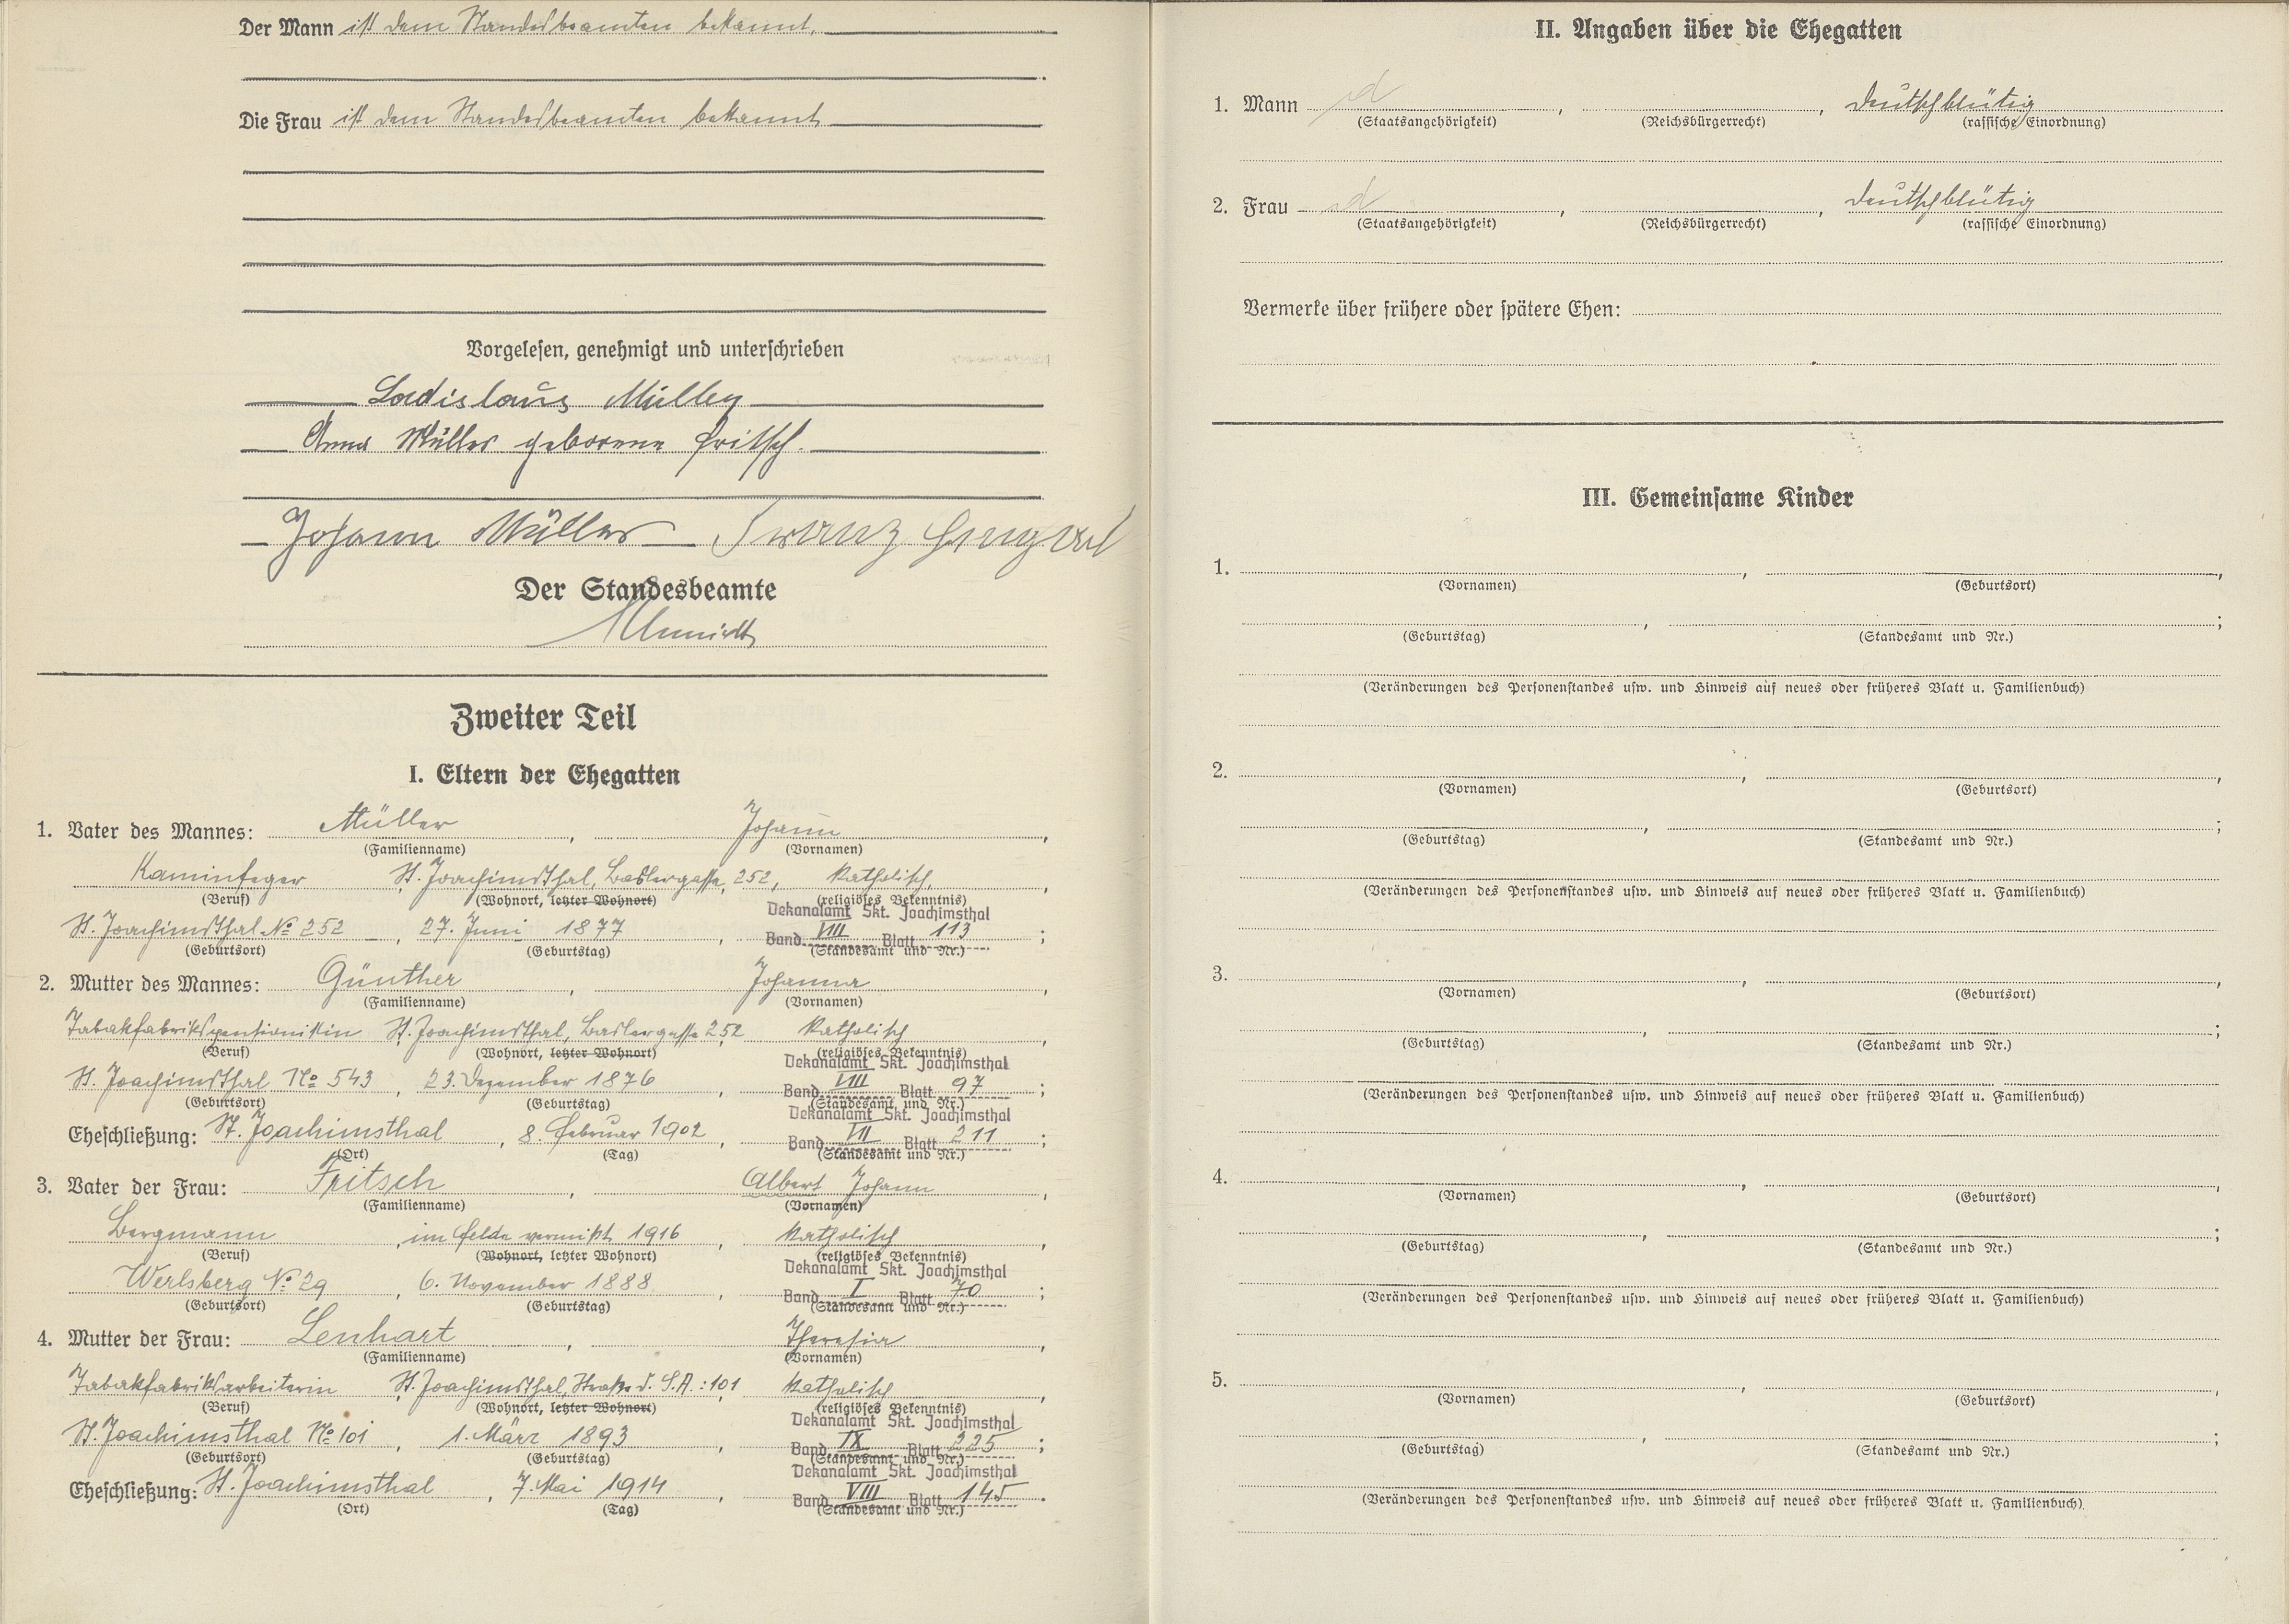 Der Mann ist dem Standesbeamten bekannt.
Die Frau ist dem Standesbeamten bekannt
Vorgelesen, genehmigt und unterschrieben
Ladislaus Müller
Anna Müller geborene Fritsch.
Johann Müller Franz
Der Standesbeamte
Schmidt
Zweiter Teil
I. Eltern der Ehegatten
1. Vater des Mannes: Müller, Johann,
(Familienname) (Vornamen)
Kaminfeger, St. Joachimsthal, Baslergasse, 252, katholisch,
(Beruf) (Wohnort, letzter Wohnort) (religiöses Bekenntnis)
Dekanalamt Skt. Joachimsthal
St. Joachimsthal No 252, 27. Juni 1877, Band VIII Blatt 113;
(Geburtsort) (Geburtstag) (Standesamt und Nr.)
2. Mutter des Mannes: Günther, Johanna,
(Familienname) (Vornamen)
Tabakfabrikspensionistin St. Joachimsthal, Baslergasse 252, katholisch,
(Beruf) (Wohnort, letzter Wohnort) (religiöses Bekenntnis)
Dekanalamt Skt. Joachimsthal
St. Joachimsthal No 543, 23. Dezember 1876, Band VIII Blatt 97;
(Geburtsort) (Geburtstag) (Standesamt und Nr.)
Dekanalamt Skt. Joachimsthal
Eheschließung: St. Joachimsthal, 8. Februar 1902, Band VII Blatt 211;
(Ort) (Tag) (Standesamt und Nr.)
3. Vater der Frau: Fritsch, Albert Johann,
(Familienname) (Vornamen)
Bergmann, im Felde vermißt 1916, katholisch,
(Beruf) (Wohnort, letzter Wohnort) (religiöses Bekenntnis)
Dekanalamt Skt. Joachimsthal
Werlsberg No 29, 6. November 1888, Band I Blatt 70;
(Geburtsort) (Geburtstag) (Standesamt und Nr.)
4. Mutter der Frau: Lenhart, Theresia,
(Familienname) (Vornamen)
Tabakfabriksarbeiterin, St. Joachimsthal, Straße d. S.A.: 101, katholisch,
(Beruf) (Wohnort, letzter Wohnort) (religiöses Bekenntnis)
Dekanalamt Skt. Joachimsthal
St. Joachimsthal No 101, 1. März 1893, Band IX Blatt 225;
(Geburtsort) (Geburtstag) (Standesamt und Nr.)
Dekanalamt Skt. Joachimsthal
Eheschließung: St. Joachimsthal, 7. Mai 1914, Band VIII Blatt 145.
(Ort) (Tag) (Standesamt und Nr.)
II. Angaben über die Ehegatten
1. Mann d, , deutschblütig
(Staatsangehörigkeit) (Reichsbürgerrecht) (rassische Einordnung)
2. Frau d, , deutschblütig
(Staatsangehörigkeit) (Reichsbürgerrecht) (rassische Einordnung)
Vermerke über frühere oder spätere Ehen:
III. Gemeinsame Kinder
1. , ,
(Vornamen) (Geburtsort)
, ;
(Geburtstag) (Standesamt und Nr.)
(Veränderungen des Personenstandes usw. und Hinweis auf neues oder früheres Blatt u. Familienbuch)
2. , ,
(Vornamen) (Geburtsort)
, ;
(Geburtstag) (Standesamt und Nr.)
(Veränderungen des Personenstandes usw. und Hinweis auf neues oder früheres Blatt u. Familienbuch)
3. , ,
(Vornamen) (Geburtsort)
, ;
(Geburtstag) (Standesamt und Nr.)
(Veränderungen des Personenstandes usw. und Hinweis auf neues oder früheres Blatt u. Familienbuch)
4. , ,
(Vornamen) (Geburtsort)
, ;
(Geburtstag) (Standesamt und Nr.)
(Veränderungen des Personenstandes usw. und Hinweis auf neues oder früheres Blatt u. Familienbuch)
5. , ,
(Vornamen) (Geburtsort)
, ;
(Geburtstag) (Standesamt und Nr.)
(Veränderungen des Personenstandes usw. und Hinweis auf neues oder früheres Blatt u. Familienbuch).